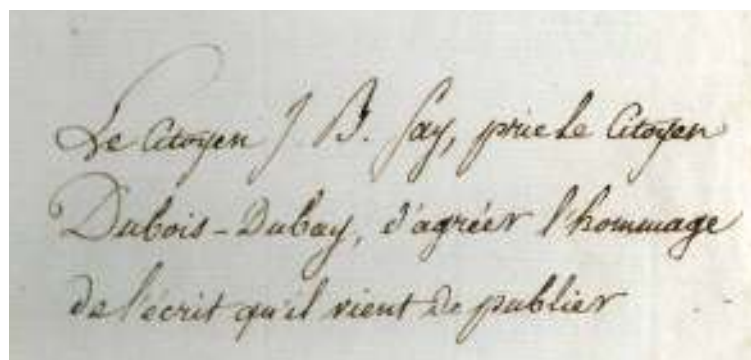 Le Citoyen J B. Say, prie le Citoyen
Dubois-Dubay, d'agréer l'hommage
de l'écrit qu'il vient de publier